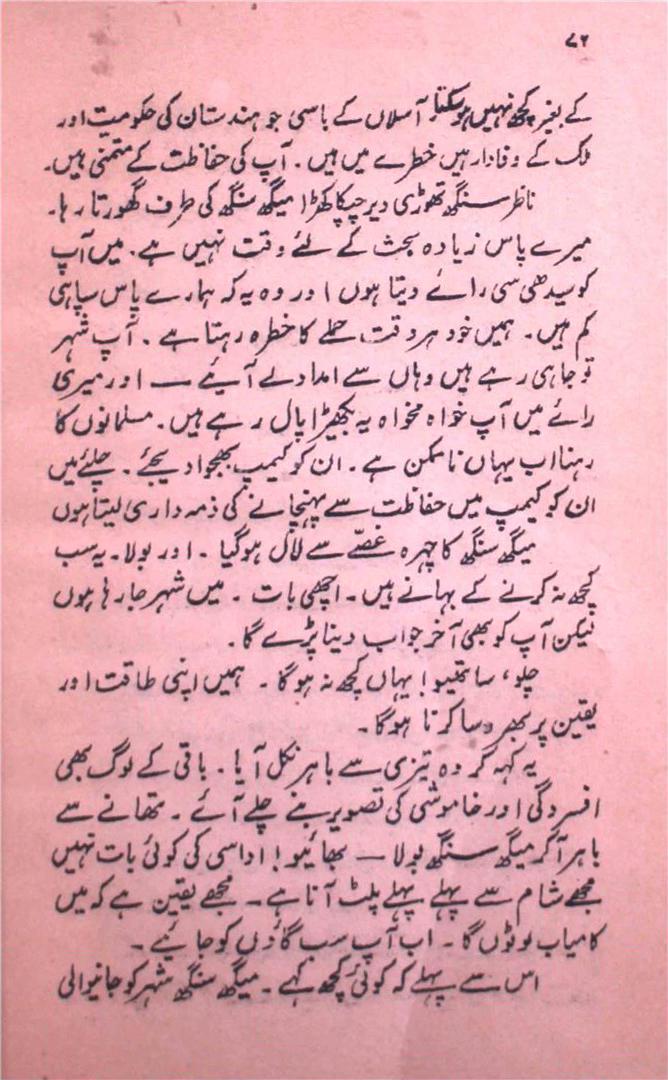 ۷۲
کے بغیر کچھ نہیں ہو سکتا آسلاں کے باسی جو ہندستان کی حکومیت اور
ملک کے وفادار ہیں خطرے میں ہیں۔ آپ کی حفاظت کے متمنی ہیں۔
ناظر سنگھ تھوڑی دیر چپکا کھڑا میگھ سنگھ کی طرف گھورتا رہا۔
میرے پاس زیادہ بحث کے لئے وقت نہیں ہے۔ میں آپ
کو سیدھی سی رائے دیتا ہوں اور وہ یہ کہ ہمارے پاس سپاہی
کم ہیں۔ ہمیں خود ہر وقت حملے کا خطرہ رہتا ہے۔ آپ شہر
تو جا ہی رہے ہیں وہاں سے امداد لے آیئے — اور میری
رائے میں آپ خواہ مخواہ یہ بکھیڑا پال رہے ہیں۔ مسلمانوں کا
رہنا اب یہاں ناممکن ہے۔ ان کو کیمپ بھجوا دیجئے۔ چلئے میں
ان کو کیمپ میں حفاظت سے پہنچانے کی ذمہ داری لیتا ہوں
میگھ سنگھ کا چہرہ غصّے سے لال ہو گیا۔ اور بولا۔ یہ سب
کچھ نہ کرنے کے بہانے ہیں۔ اچھی بات۔ میں شہر جا رہا ہوں
لیکن آپ کو بھی آخر جواب دینا پڑے گا۔
چلو، ساتھیو! یہاں کچھ نہ ہوگا۔ ہمیں اپنی طاقت اور
یقین پر بھروسا کرنا ہوگا۔
یہ کہہ کر وہ تیزی سے باہر نکل آیا۔ باقی کے لوگ بھی
افسردگی اور خاموشی کی تصویر بنے چلے آئے۔ تھانے سے
باہر آ کر میگھ سنگھ بولا — بھائیو! اداسی کی کوئی بات نہیں
مجھے شام سے پہلے پہلے پلٹ آنا ہے۔ مجھے یقین ہے کہ میں
کامیاب لوٹوں گا۔ اب آپ سب گاؤں کو جائیے۔
اس سے پہلے کہ کوئی کچھ کہے۔ میگھ سنگھ شہر کو جانیوالی